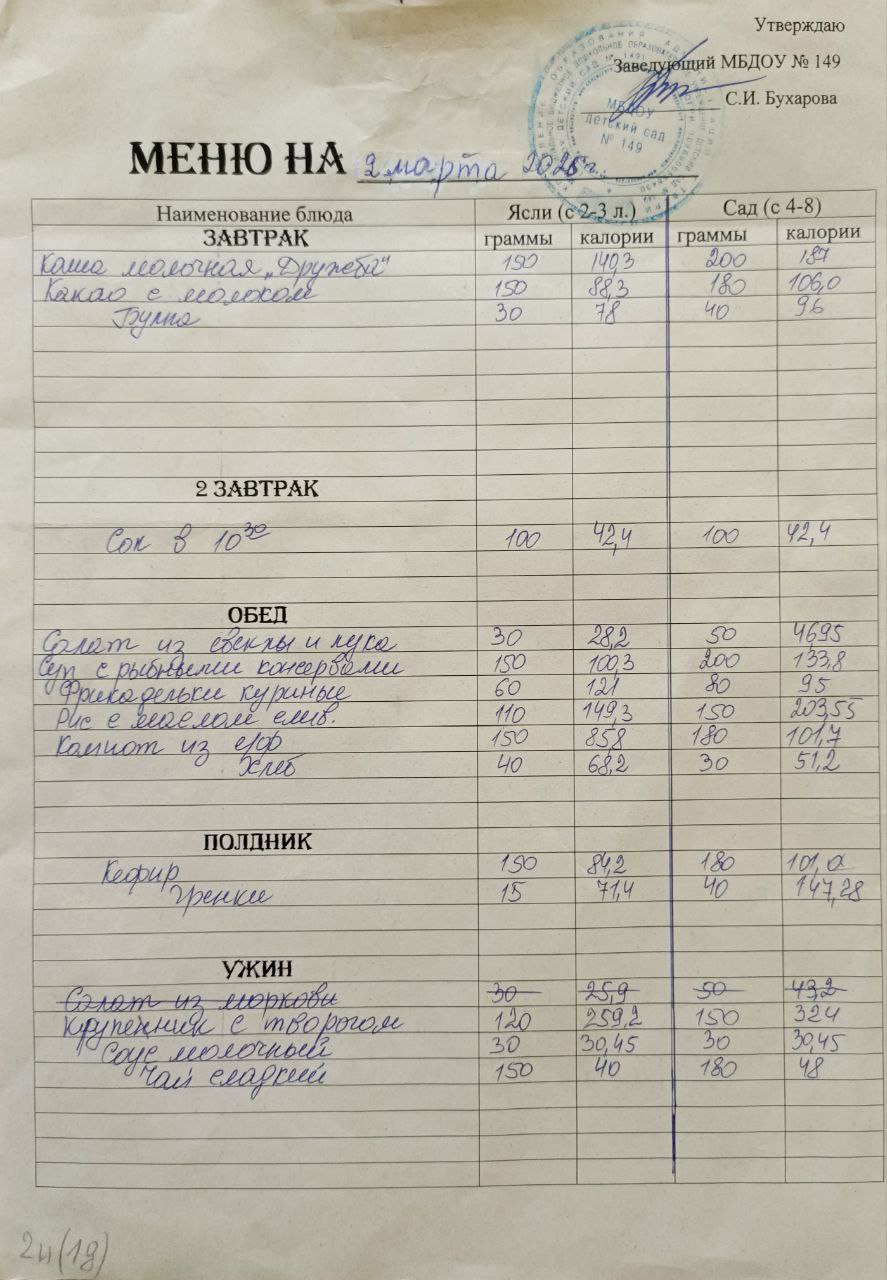 Утверждаю
Заведующий МБДОУ № 149
С.И. Бухарова
МБДОУ
детский сад
№ 149
МЕНЮ НА 2 марта 2026
Наименование блюда Ясли (с 2-3 л.) Сад (с 4-8)
ЗАВТРАК граммы калории граммы калории
Каша молочная „Дружба" 150 140,3 200 187
Какао с молоком 150 88,3 180 106,0
Булка 30 78 40 96
2 ЗАВТРАК
Сок в 10 30 100 42,4 100 42,4
ОБЕД
Салат из свеклы и лука 30 28,2 50 46,95
Суп с рыбными консервами 150 100,3 200 133,8
Фрикадельки куриные 60 121 80 95
Рис с маслом слив. 110 149,3 150 203,55
Компот из с/ф 150 85,8 180 101,7
Хлеб 40 68,2 30 51,2
ПОЛДНИК
Кефир 150 84,2 180 101,0
Гренки 15 71,4 40 147,28
УЖИН
Салат из моркови 30 25,9 50 43,2
Крупенник с творогом 120 259,2 150 324
Соус молочный 30 30,45 30 30,45
Чай сладкий 150 40 180 48